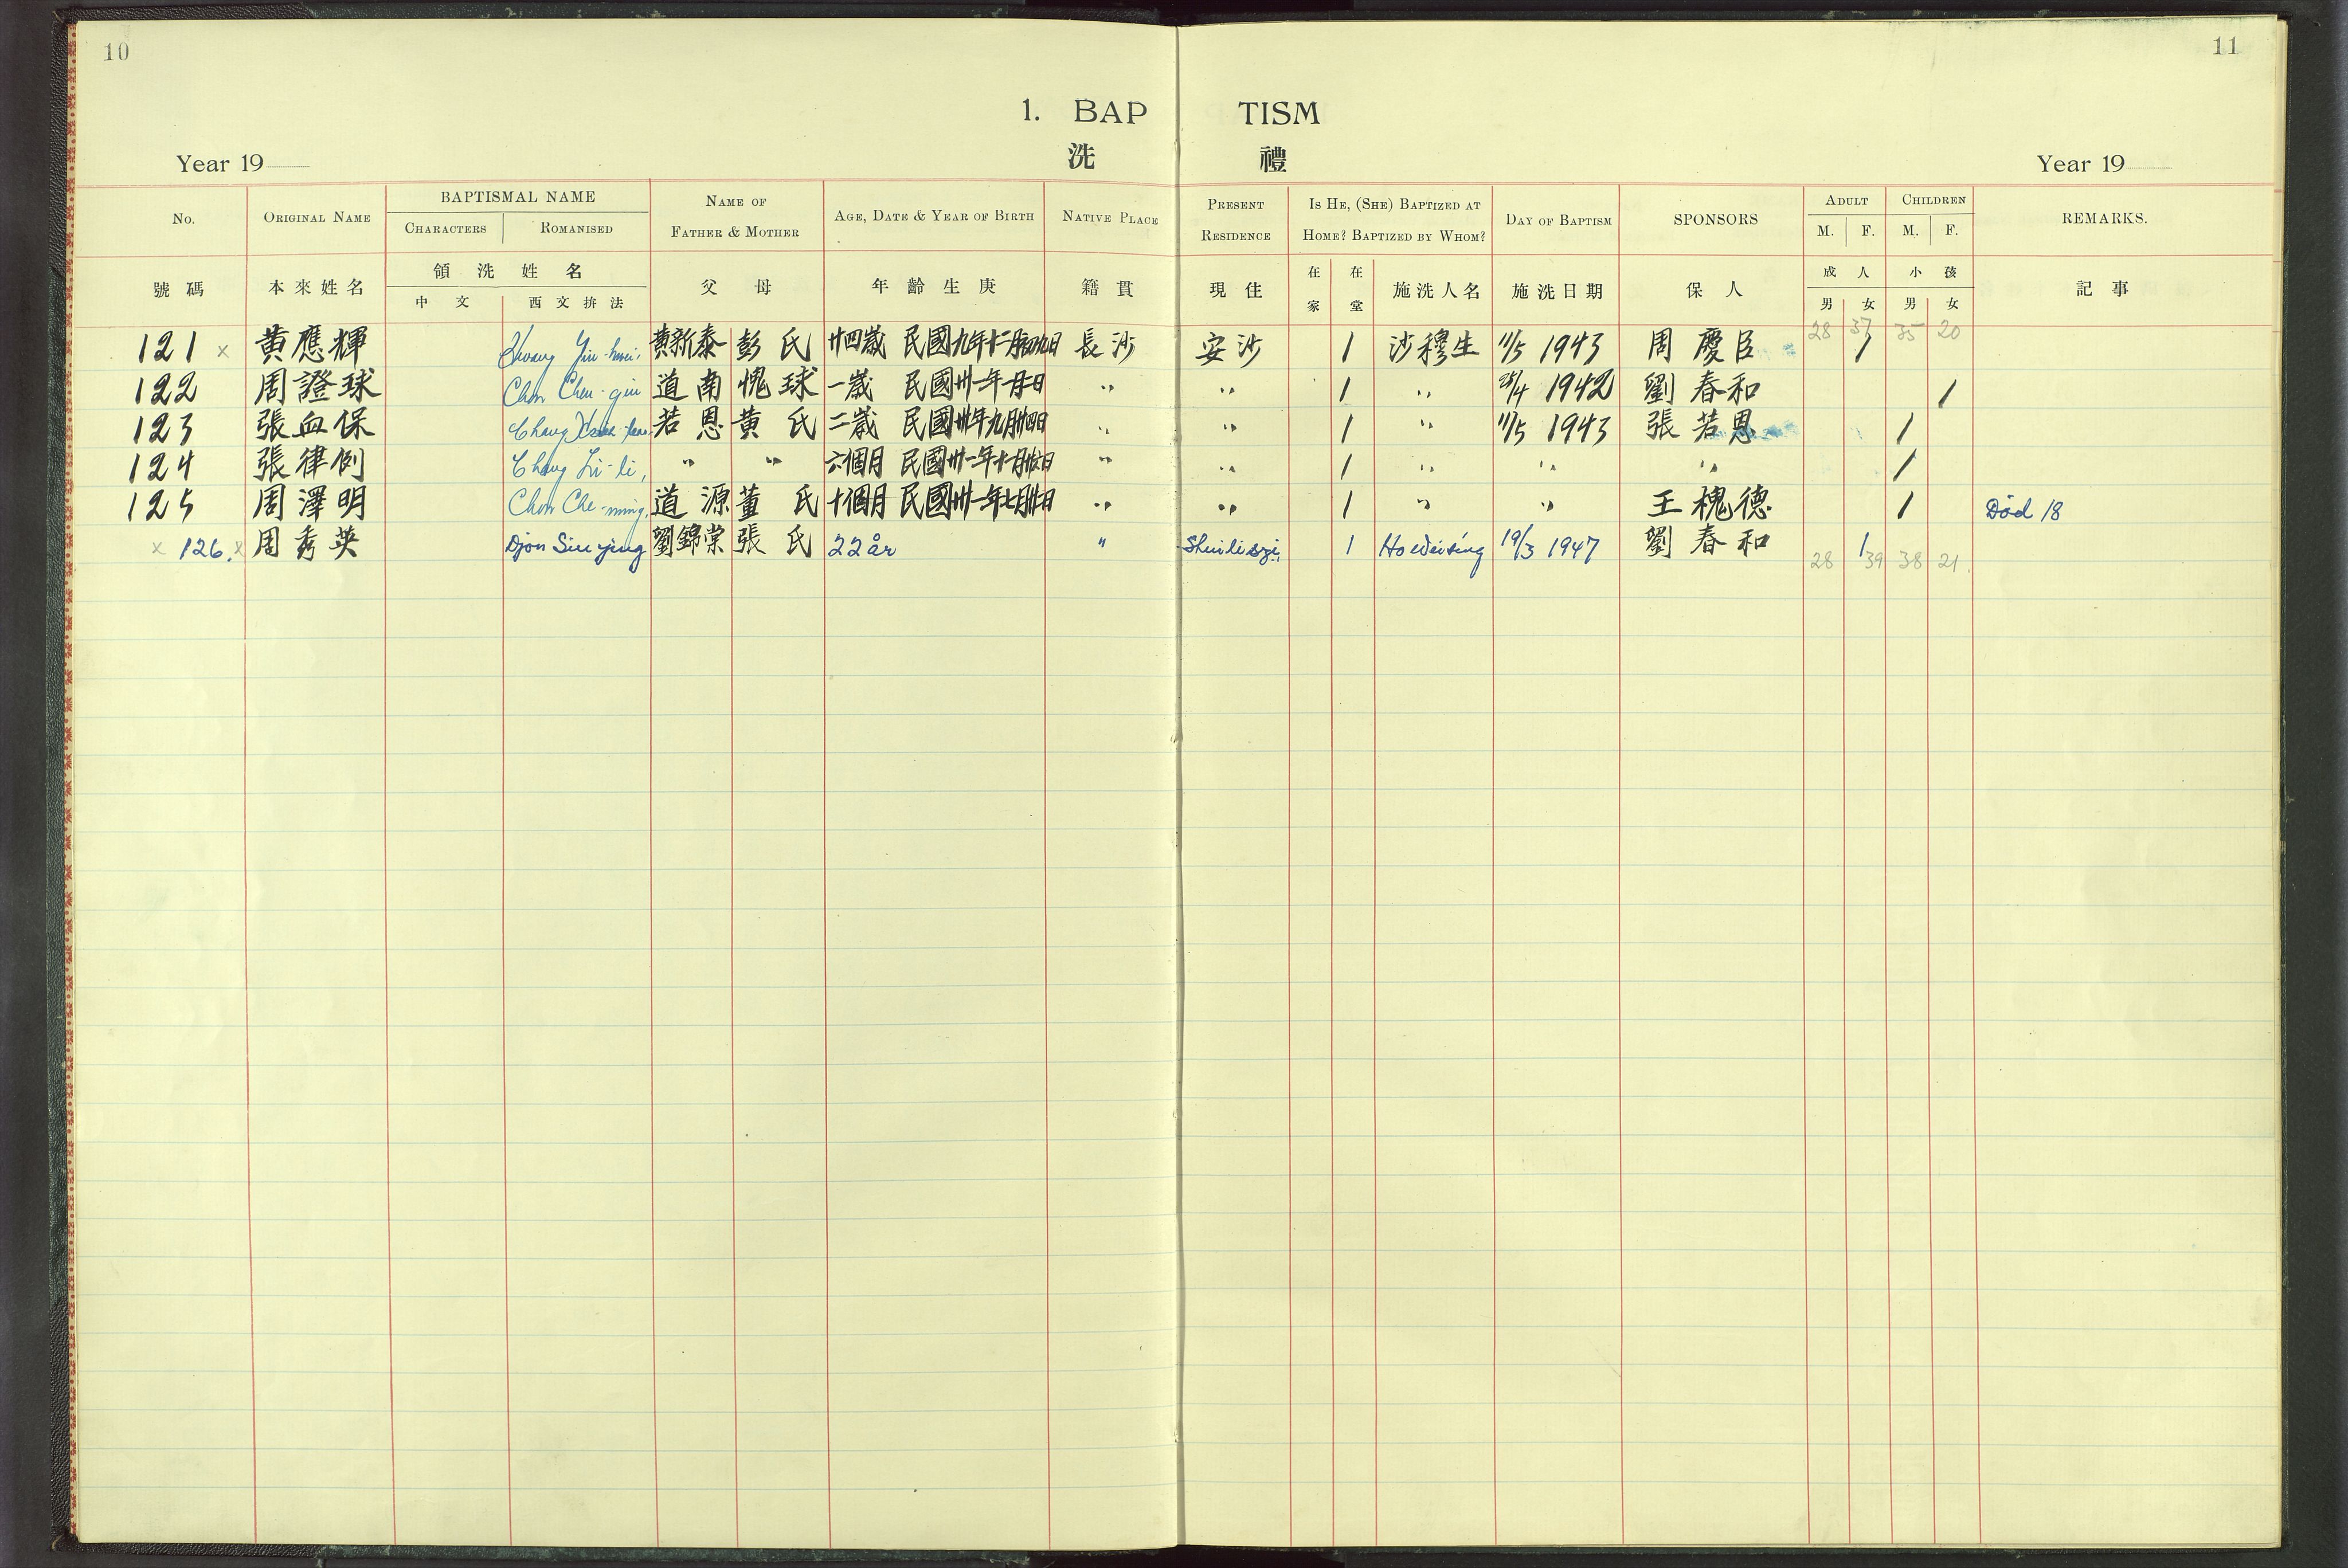 10
11
1. BAP TISM
洗 禮
Year 19
Year 19
No. ORIGINAL NAME BAPTISMAL NAME NAME OF FATHER & MOTHER AGE, DATE & YEAR OF BIRTH NATIVE PLACE PRESENT RESIDENCE IS HE, (SHE) BAPTIZED AT HOME? BAPTIZED BY WHOM? DAY OF BAPTISM SPONSORS ADULT CHILDREN REMARKS.
CHARACTERS ROMANISED M. F. M. F.
號碼 本來姓名 領洗姓名 父母 年齡生庚 籍貫 現住 在家 在堂 施洗人名 施洗日期 保人 成人 小孩 記事
中文 西文拚法 男 女 男 女
28 37 35 20
121 x 黃應輝 Hwang Yin-hwei, 黃新泰 彭氏 廿四歲 民國九年十二月初九日 長沙 安沙 1 沙穆生 11/5 1943 周慶臣 1
122 周證球 Chou Chen-giu 道南 愧球 一歲 民國卅一年一月二日 " " 1 " 25/4 1942 劉春和 1
123 張血保 Chang 若恩 黃氏 二歲 民國卅年九月廿四日 " " 1 " 11/5 1943 張若恩 1
124 張律例 Chang Li-li, " " 六個月 民國卅一年十一月 日 " " 1 " " " 1
125 周澤明 Chou Che-ming, 道源 董氏 十個月 民國卅一年七月 日 " " 1 " " 王槐德 1 Död 18
x 126. x 周秀英 Djou Siu ying 劉錦棠 張氏 22 år " Shuiliszi, 1 Ho 19/3 1947 劉春和 1
28 39 38 21.